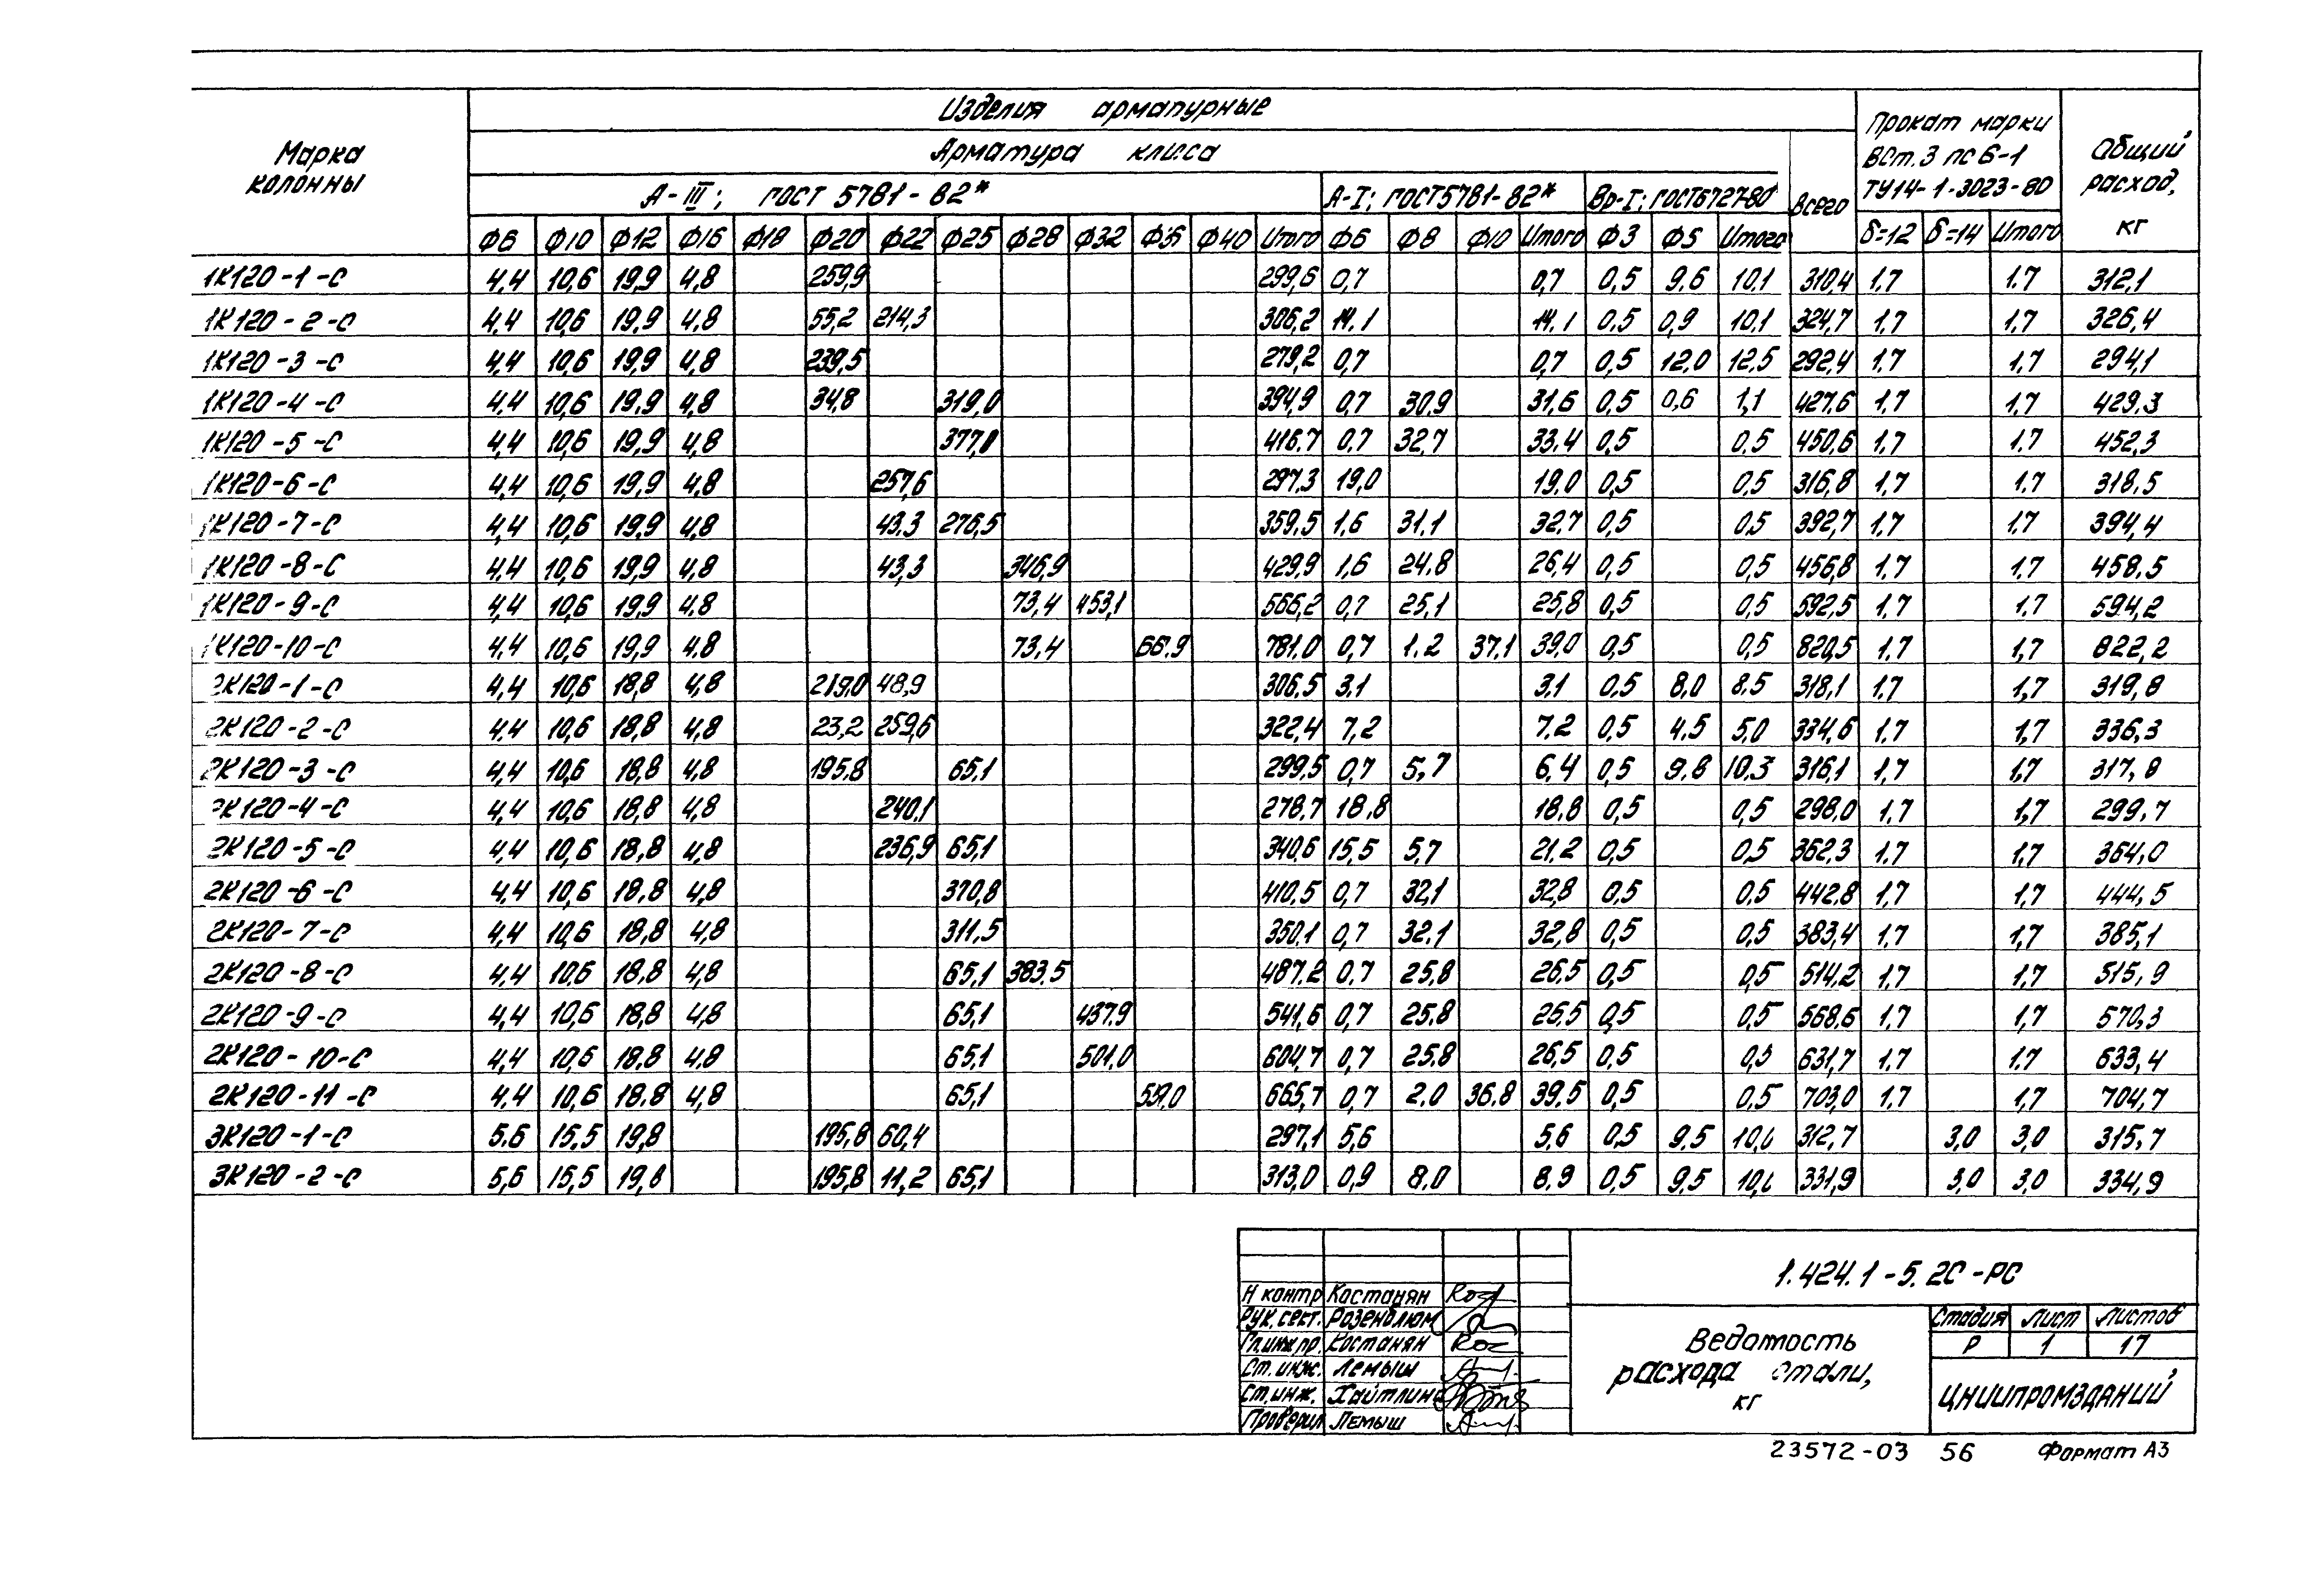 Изделия арматурные
Марка колонны
Арматура класса
Всего
Прокат марки ВСт.3 пс 6-1 ТУ14-1-3023-80
Общий расход, кг
А-III; ГОСТ 5781-82*
А-I; ГОСТ5781-82*
Вр-I; ГОСТ6727-80
Ф6 Ф10 Ф12 Ф16 Ф18 Ф20 Ф22 Ф25 Ф28 Ф32 Ф36 Ф40 Итого Ф6 Ф8 Ф10 Итого Ф3 Ф5 Итого δ=12 δ=14 Итого
1К120-1-С 4,4 10,6 19,9 4,8 259,9 299,6 0,7 0,7 0,5 9,6 10,1 310,4 1.7 1.7 312,1
1К120-2-С 4,4 10,6 19,9 4,8 55,2 214,3 306,2 14.1 14.1 0,5 0,9 10.1 324,7 1,7 1,7 326,4
1К120-3-С 4,4 10,6 19,9 4,8 239,5 279,2 0,7 0,7 0,5 12.0 12.5 292,4 1,7 1,7 294,1
1К120-4-С 4,4 10,6 19,9 4,8 34,8 319,0 394,9 0,7 30,9 31,6 0,5 0,6 1,1 427,6 1,7 1,7 429.3
1К120-5-С 4,4 10,6 19,9 4,8 377,0 416.7 0,7 32,7 33,4 0,5 0,5 450,6 1.7 1.7 452,3
1К120-6-С 4,4 10,6 19,9 4,8 257,6 297,3 19,0 19,0 0,5 0,5 316,8 1,7 1.7 318.5
1К120-7-С 4,4 10,6 19,9 4,8 43.3 276,5 359,5 1,6 31.1 32,7 0,5 0,5 392,7 1.7 1.7 394,4
1К120-8-С 4,4 10,6 19,9 4,8 43,3 346,9 429,9 1,6 24.8 26,4 0,5 0,5 456,8 1.7 1,7 458.5
1К120-9-С 4,4 10,6 19,9 4,8 73,4 453,1 566,2 0,7 25,1 25,8 0,5 0,5 592,5 1.7 1.7 594,2
1К120-10-С 4,4 10,6 19,9 4,8 73,4 781.0 0,7 1.2 37.1 39,0 0,5 0,5 820,5 1.7 1,7 822,2
2К120-1-С 4,4 10,6 18,8 4,8 219,0 48,9 306,5 3.1 3,1 0,5 8,0 8.5 318,1 1.7 1,7 319,8
2К120-2-С 4,4 10,6 18,8 4,8 23,2 259,6 322,4 7,2 7.2 0,5 4.5 5,0 334,6 1.7 1,7 336,3
2К120-3-С 4,4 10,6 18,8 4,8 195.8 65,1 299,5 0,7 5,7 6,4 0,5 9.8 10,3 316,1 1,7 1,7 317,8
2К120-4-С 4,4 10,6 18,8 4,8 240,1 278,7 18,8 18,8 0,5 0,5 298,0 1.7 1,7 299,7
2К120-5-С 4,4 10,6 18,8 4,8 236,9 65,1 340,6 15,5 5,7 21,2 0,5 0,5 362,3 1.7 1,7 364,0
2К120-6-С 4,4 10,6 18,8 4,8 370,8 410,5 0,7 32,1 32,8 0,5 0,5 442.8 1,7 1,7 444,5
2К120-7-С 4,4 10,6 18,8 4,8 311,5 350,1 0,7 32.1 32,8 0,5 0,5 383,4 1.7 1,7 385,1
2К120-8-С 4,4 10,6 18,8 4,8 65,1 383.5 487.2 0.7 25,8 26,5 0,5 0,5 514,2 1,7 1,7 515,9
2К120-9-С 4,4 10,6 18,8 4,8 65,1 437,9 541,6 0,7 25,8 26,5 0,5 0,5 568.6 1,7 1,7 570,3
2К120-10-С 4,4 10,6 18,8 4,8 65,1 501,0 604,7 0,7 25,8 26,5 0,5 0,5 631,7 1.7 1.7 633,4
2К120-11-С 4,4 10,6 18.8 4,8 65,1 665,7 0,7 2.0 36.8 39,5 0,5 0,5 703,0 1.7 1,7 704,7
3К120-1-С 5.6 15,5 19,8 195,8 60,4 297,1 5,6 5,6 0,5 9,5 10,0 312,7 3,0 3,0 315,7
3К120-2-С 5,6 15,5 19,8 195,8 11,2 65,1 313,0 0,9 8.0 8.9 0,5 9,5 10,0 331,9 3,0 3,0 334,9
1.424.1-5.2С-РС
Н контр Костанян
Рук. сект. Розенблюм
Гл.инж.пр. Костанян
Ст. инж. Лемыш
Ст. инж. Хайтлин
Проверил Лемыш
Ведомость расхода стали, кг
Стадия Лист Листов
Р 1 17
ЦНИИПРОМЗДАНИЙ
23572-03 56 Формат А3